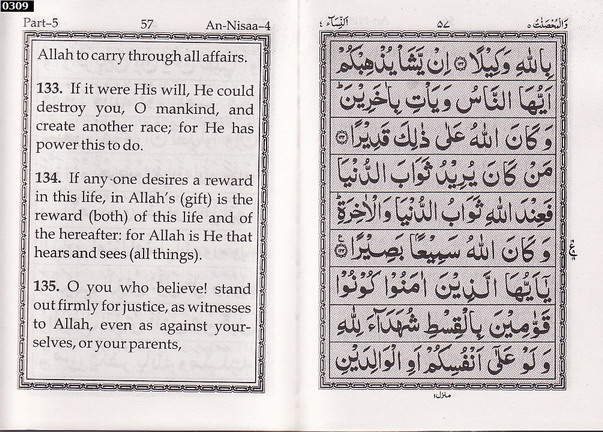 0309
Part–5 57 An-Nisaa–4
Allah to carry through all affairs.
133. If it were His will, He could
destroy you, O mankind, and
create another race; for He has
power this to do.
134. If any one desires a reward
in this life, in Allah's (gift) is the
reward (both) of this life and of
the hereafter: for Allah is He that
hears and sees (all things).
135. O you who believe! stand
out firmly for justice, as witnesses
to Allah, even as against your-
selves, or your parents,
النِّسَآء ٤ ٥٧ وَالْمُحْصَنٰتُ ٥
بِاللّٰهِ وَكِيْلًا ﴿١٣٢﴾ اِنْ يَّشَاْ يُذْهِبْكُمْ
اَيُّهَا النَّاسُ وَيَاْتِ بِاٰخَرِيْنَ ؕ
وَكَانَ اللّٰهُ عَلٰى ذٰلِكَ قَدِيْرًا ﴿١٣٣﴾
مَنْ كَانَ يُرِيْدُ ثَوَابَ الدُّنْيَا
فَعِنْدَ اللّٰهِ ثَوَابُ الدُّنْيَا وَالْاٰخِرَةِ ؕ
وَكَانَ اللّٰهُ سَمِيْعًۢا بَصِيْرًا ﴿١٣٤﴾
يٰۤاَيُّهَا الَّذِيْنَ اٰمَنُوْا كُوْنُوْا
قَوّٰمِيْنَ بِالْقِسْطِ شُهَدَآءَ لِلّٰهِ
وَلَوْ عَلٰۤى اَنْفُسِكُمْ اَوِ الْوَالِدَيْنِ
منزل ١